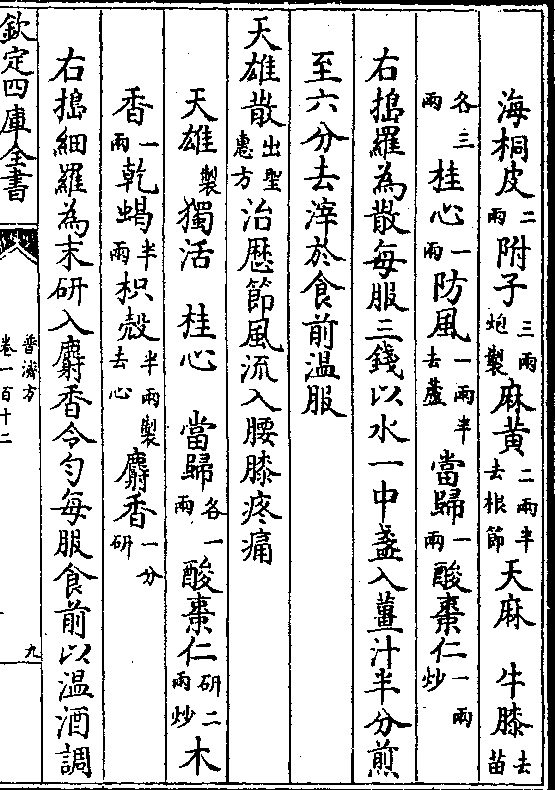 海桐皮二兩附子三兩炮製麻黃二兩半去根節天麻 牛膝去苗
各三兩桂心一兩防風一兩半去蘆當歸一兩酸棗仁一兩炒
右搗羅為散每服三錢以水一中盞入薑汁半分煎
至六分去滓於食前温服
天雄散出聖惠方治歴節風流入腰膝疼痛
天雄製獨活 桂心 當歸各一兩酸棗仁研二兩炒木
香一兩乾蝎半兩枳殼半兩製去心麝香一分研
右搗細羅為末研入麝香令勻每服食前以温酒調
欽定四庫全書
普濟方
卷一百十二
九